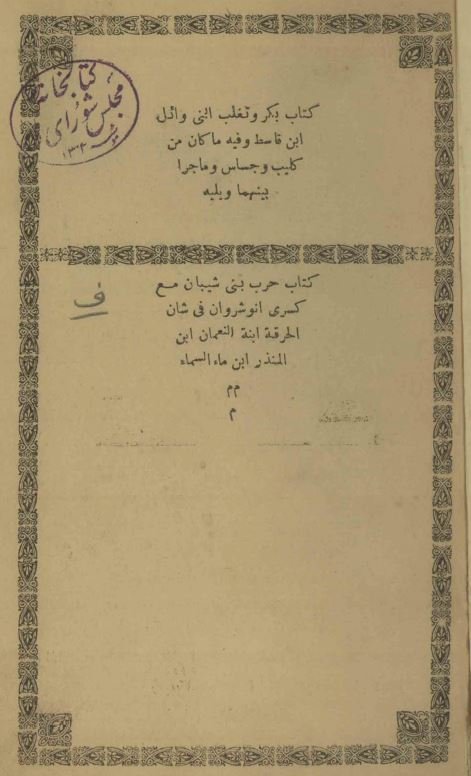 كتابخانه
مجلس شورای
كتاب بكر وتغلب ابنى وائل
ابن قاسط وفيه ماكان من
كليب وجساس وماجرا
بينهما ويليه
كتاب حرب بنى شيبان مع
كسرى انوشروان فى شان
الحرقة ابنة النعمان ابن
المنذر ابن ماء السماء
مم
م
ف